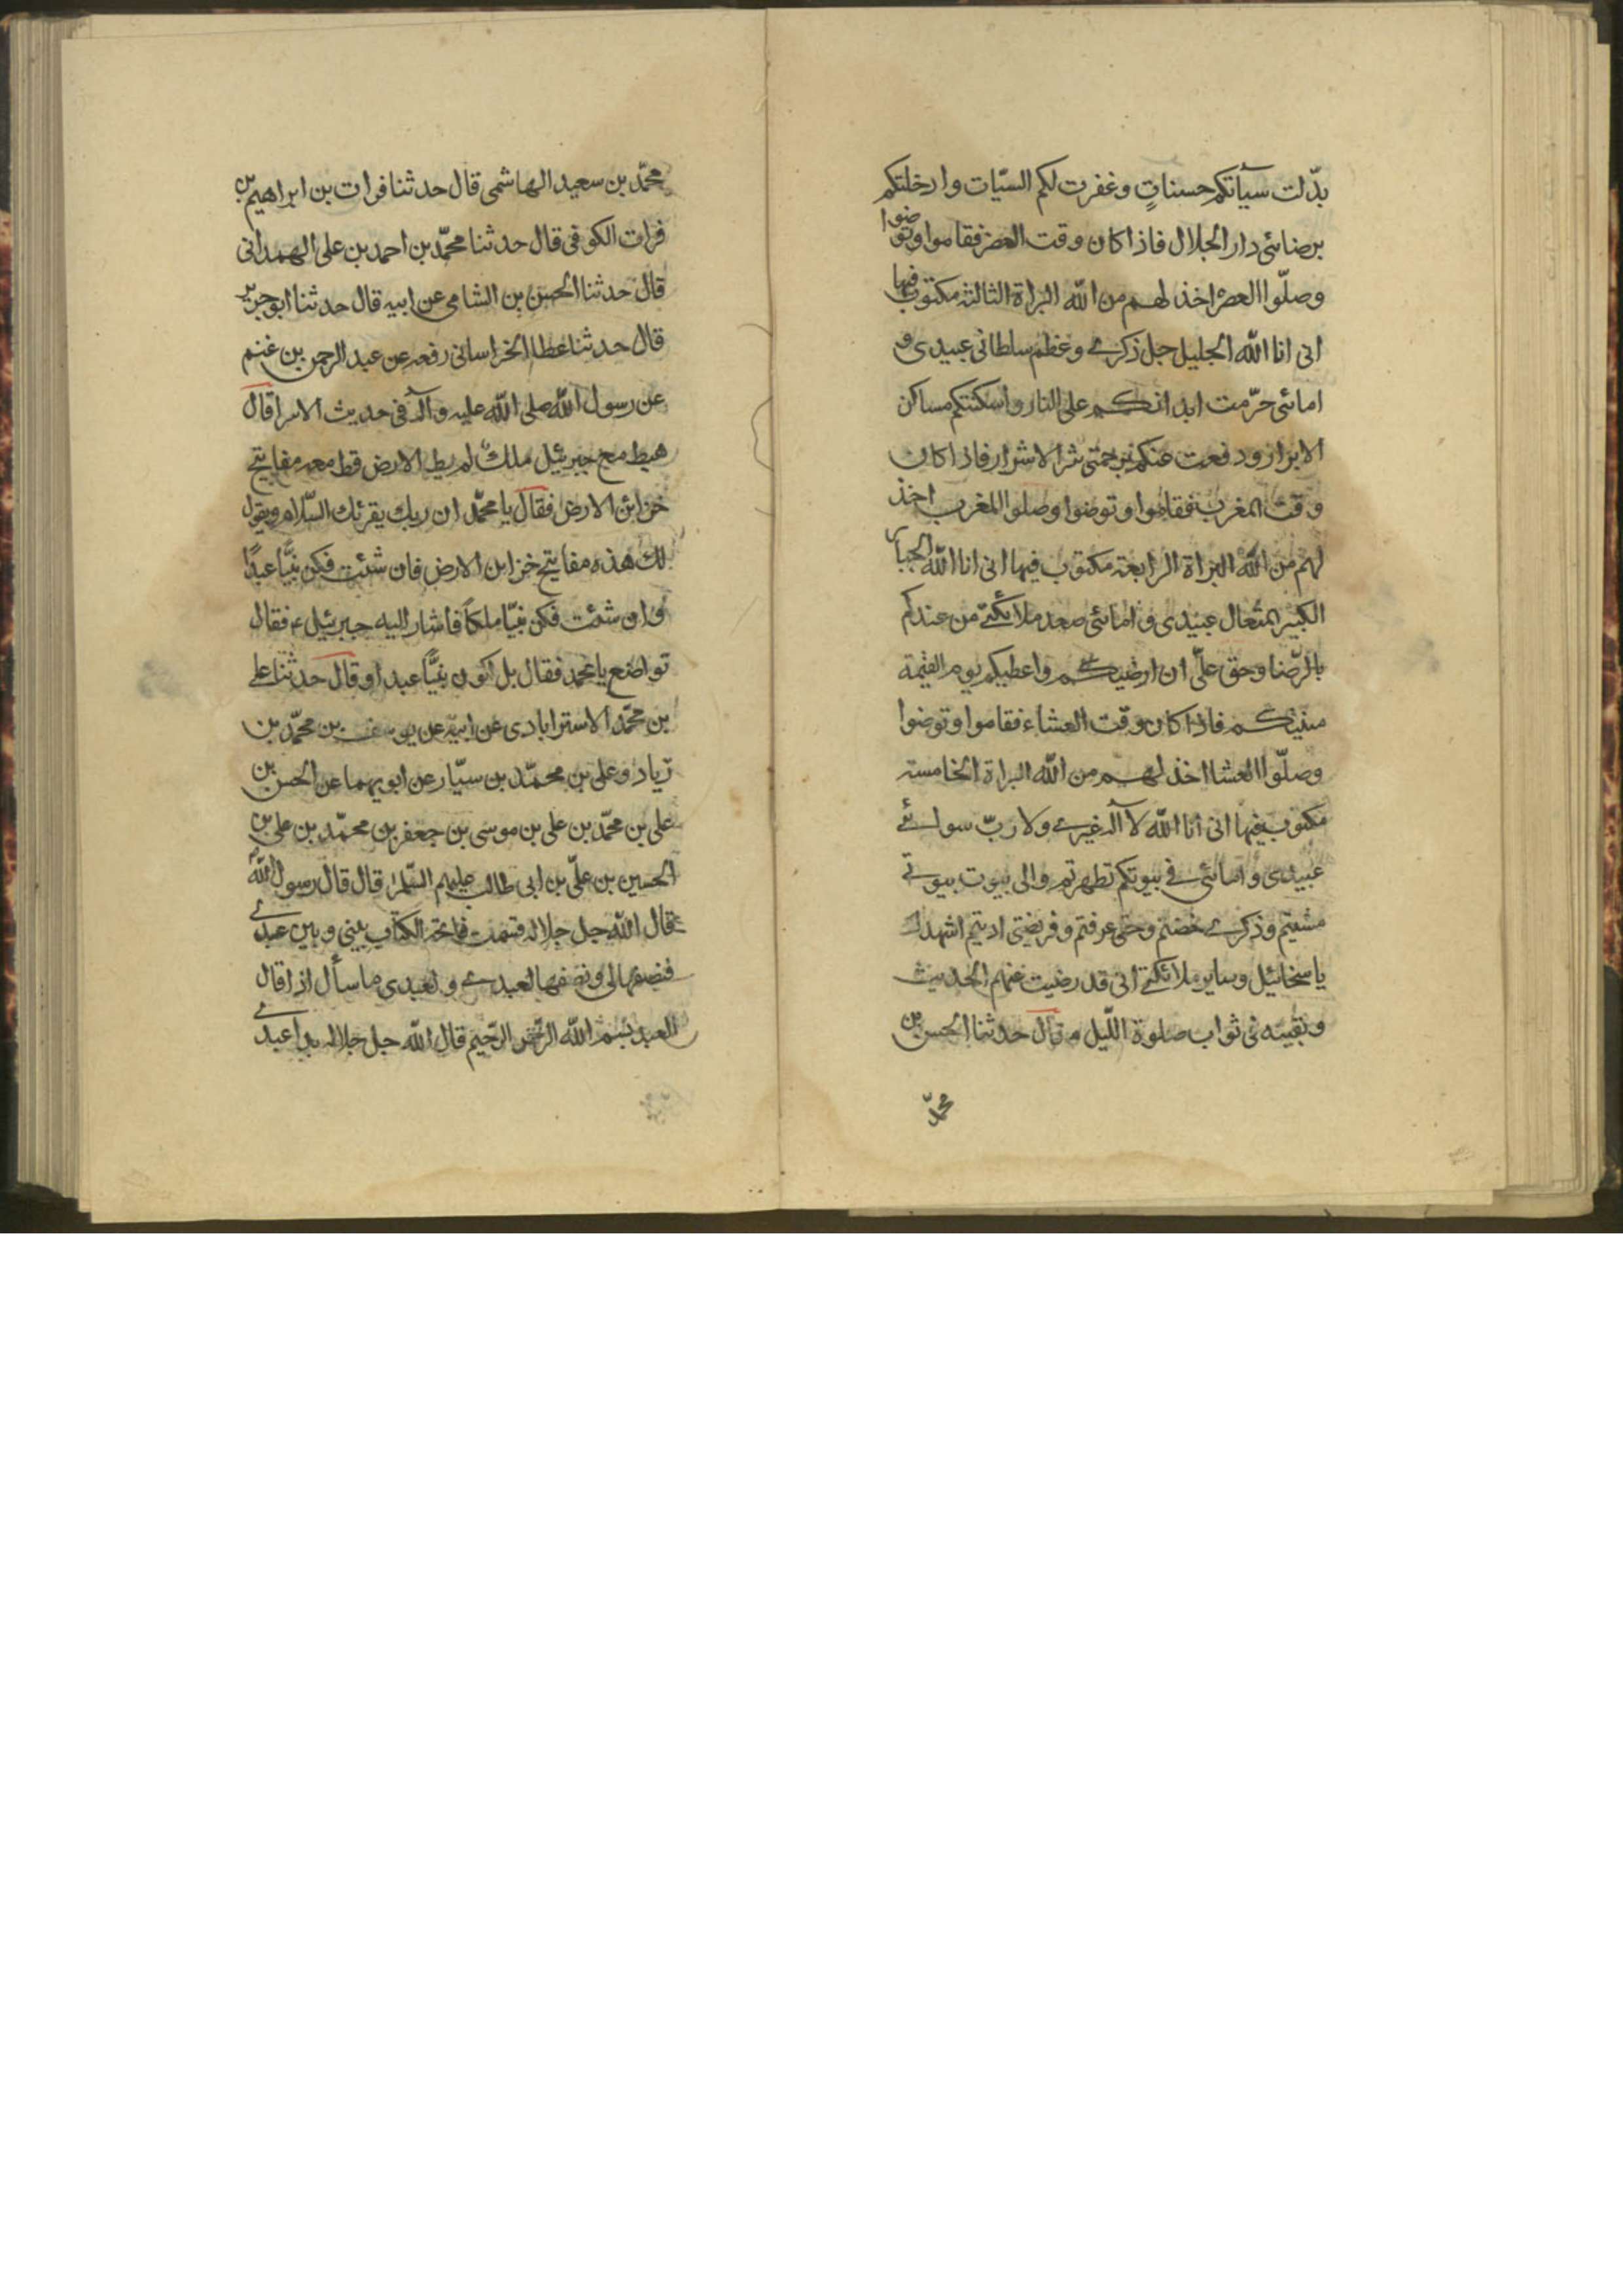 بدّلت سيآتكم حسناتٍ وغفرت لكم السيّات وادخلتكم
برضائى دار الجلال فاذا كان وقت العصر فقاموا وتوضوا
وصلّوا العصر اخذ لهم من الله البراة الثالثة مكتوب فيها
انى انا الله الجليل جل ذكرى وعظم سلطانى عبيدى و
امائى حرّمت ابدانكم على النار واسكنتكم مساكن
الابرار ودفعت عنكم برحمتى شر الاشرار فاذا كان
وقت المغرب فقاموا وتوضوا وصلوا المغرب اخذ
لهم من الله البراة الرابعة مكتوب فيها انى انا الله الجبار
الكبير المتعال عبيدى وامائى صعد ملائكتى من عندكم
بالرّضا وحق علىّ ان ارضيكم واعطيكم يوم القيمة
منيتكم فاذا كان وقت العشاء فقاموا وتوضوا
وصلّوا العشا اخذ لهم من الله البراة الخامسة
مكتوب فيها انى انا الله لا آله غيرى ولا ربّ سوائى
عبيدى وامائى فى بيوتكم تطهرتم والى بيوت بيوتى
مشيتم وذكرى خضتم وحقى عرفتم وفريضتى اديتم اشهدك
يا سخائيل وساير ملائكتى انى قد رضيت عنهم الحديث
وبقيته فى ثواب صلوة اللّيل وقال حدثنا الحسن بن
محمّد
محمّد بن سعيد الهاشمى قال حدثنا فرات بن ابراهيم بن
فرات الكوفى قال حدثنا محمّد بن احمد بن على الهمدانى
قال حدثنا الحسن بن الشامى عن ابيه قال حدثنا ابو جرير
قال حدثنا عطا الخراسانى رفعه عن عبد الرحمن بن غنم
عن رسول الله صلى الله عليه وآله فى حديث الاسرا قال
هبط مع جبرئيل ملك لم يطا الارض قط معه مفاتيح
خزائن الارض فقال يا محمّد ان ربك يقرئك السّلام ويقول
لك هذه مفاتيح خزاين الارض فان شئت فكن نبيًّا عبدًا
وان شئت فكن نبيّا ملكًا فاشار اليه جبرئيل ع فقال
تواضع يا محمد فقال بل اكون نبيًّا عبدا وقال حدثنا على
بن محمّد الاسترابادى عن ابيه عن يوسف بن محمّد بن
زياد وعلى بن محمّد بن سيّار عن ابويهما عن الحسن بن
على بن محمّد بن على بن موسى بن جعفر بن محمّد بن على بن
الحسين بن علىّ بن ابى طالب عليهم السّلم قال قال رسول الله
قال الله جل جلاله قسمت فاتحة الكتاب بينى وبين عبدى
فنصفها لى ونصفها لعبدى ولعبدى ما سأل اذا قال
العبد بسم الله الرّحمن الرّحيم قال الله جل جلاله بدا عبدى